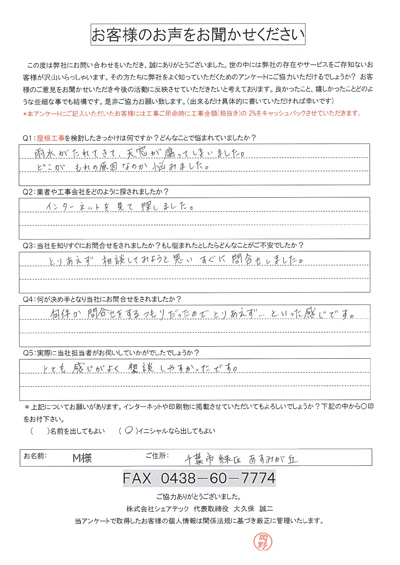 お客様のお声をお聞かせください
この度は弊社にお問い合わせをいただき、誠にありがとうございました。世の中には弊社の存在やサービスをご存知ないお
客様が沢山いらっしゃいます。その方たちに弊社をよく知っていただくためのアンケートにご協力いただけるでしょうか？ お客
様のご意見をお聞かせいただき今後の活動に反映させていただきたいと考えております。良かったこと、嬉しかったことどのよ
うな些細な事でも結構です。是非ご協力お願い致します。（出来るだけ具体的に書いていただければ幸いです）
*本アンケートにご記入いただいたお客様には工事ご用命時に工事金額（税抜き）の 2%をキャッシュバックさせていただきます。
Q1：屋根工事を検討したきっかけは何ですか？どんなことで悩まれていましたか？
雨水がたれてきて、天窓が腐ってしまいました。
どこが もれの原因なのか 悩みました。
Q2：業者や工事会社をどのように探されましたか？
インターネットを見て 探しました。
Q3：当社を知りすぐにお問合せをされましたか？もし悩まれたとしたらどんなことがご不安でしたか？
とりあえず 相談してみようと思い すぐに 問合せしました。
Q4：何が決め手となり当社にお問合せをされましたか？
何件か 問合せをするつもりだったので とりあえず… といった感じです。
Q5：実際に当社担当者がお伺いしていかがでしたでしょうか？
とても 感じがよく 相談 しやすかったです。
*上記についてお願いがあります。インターネットや印刷物に掲載させていただいてもよろしいでしょうか？下記の中から〇印
をお付下さい。
（　）名前を出してもよい （〇）イニシャルなら出してもよい
お名前: M様 ご住所: 千葉市緑区 あすみが丘
FAX 0438-60-7774
ご協力ありがとうございました。
株式会社シェアテック 代表取締役 大久保 誠二
当アンケートで取得したお客様の個人情報は関係法規に基づき厳正に管理いたします。